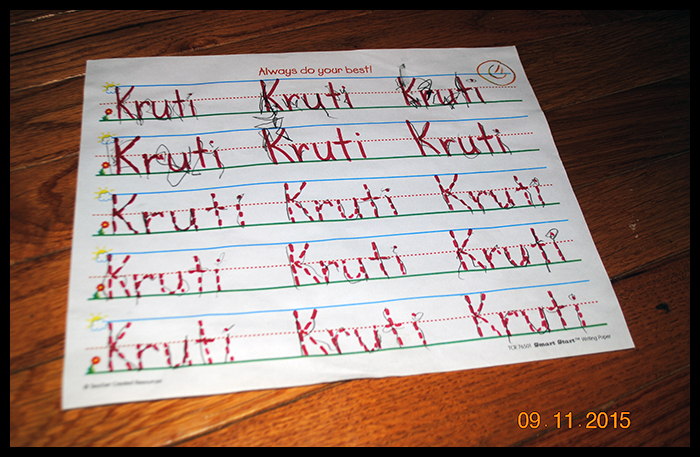 Always do your best!
Kruti Kruti Kruti
Kruti Kruti Kruti
Kruti Kruti Kruti
Kruti Kruti Kruti
Kruti Kruti Kruti
© Teacher Created Resources
TCR 76501 Smart Start™ Writing Paper
09.11.2015